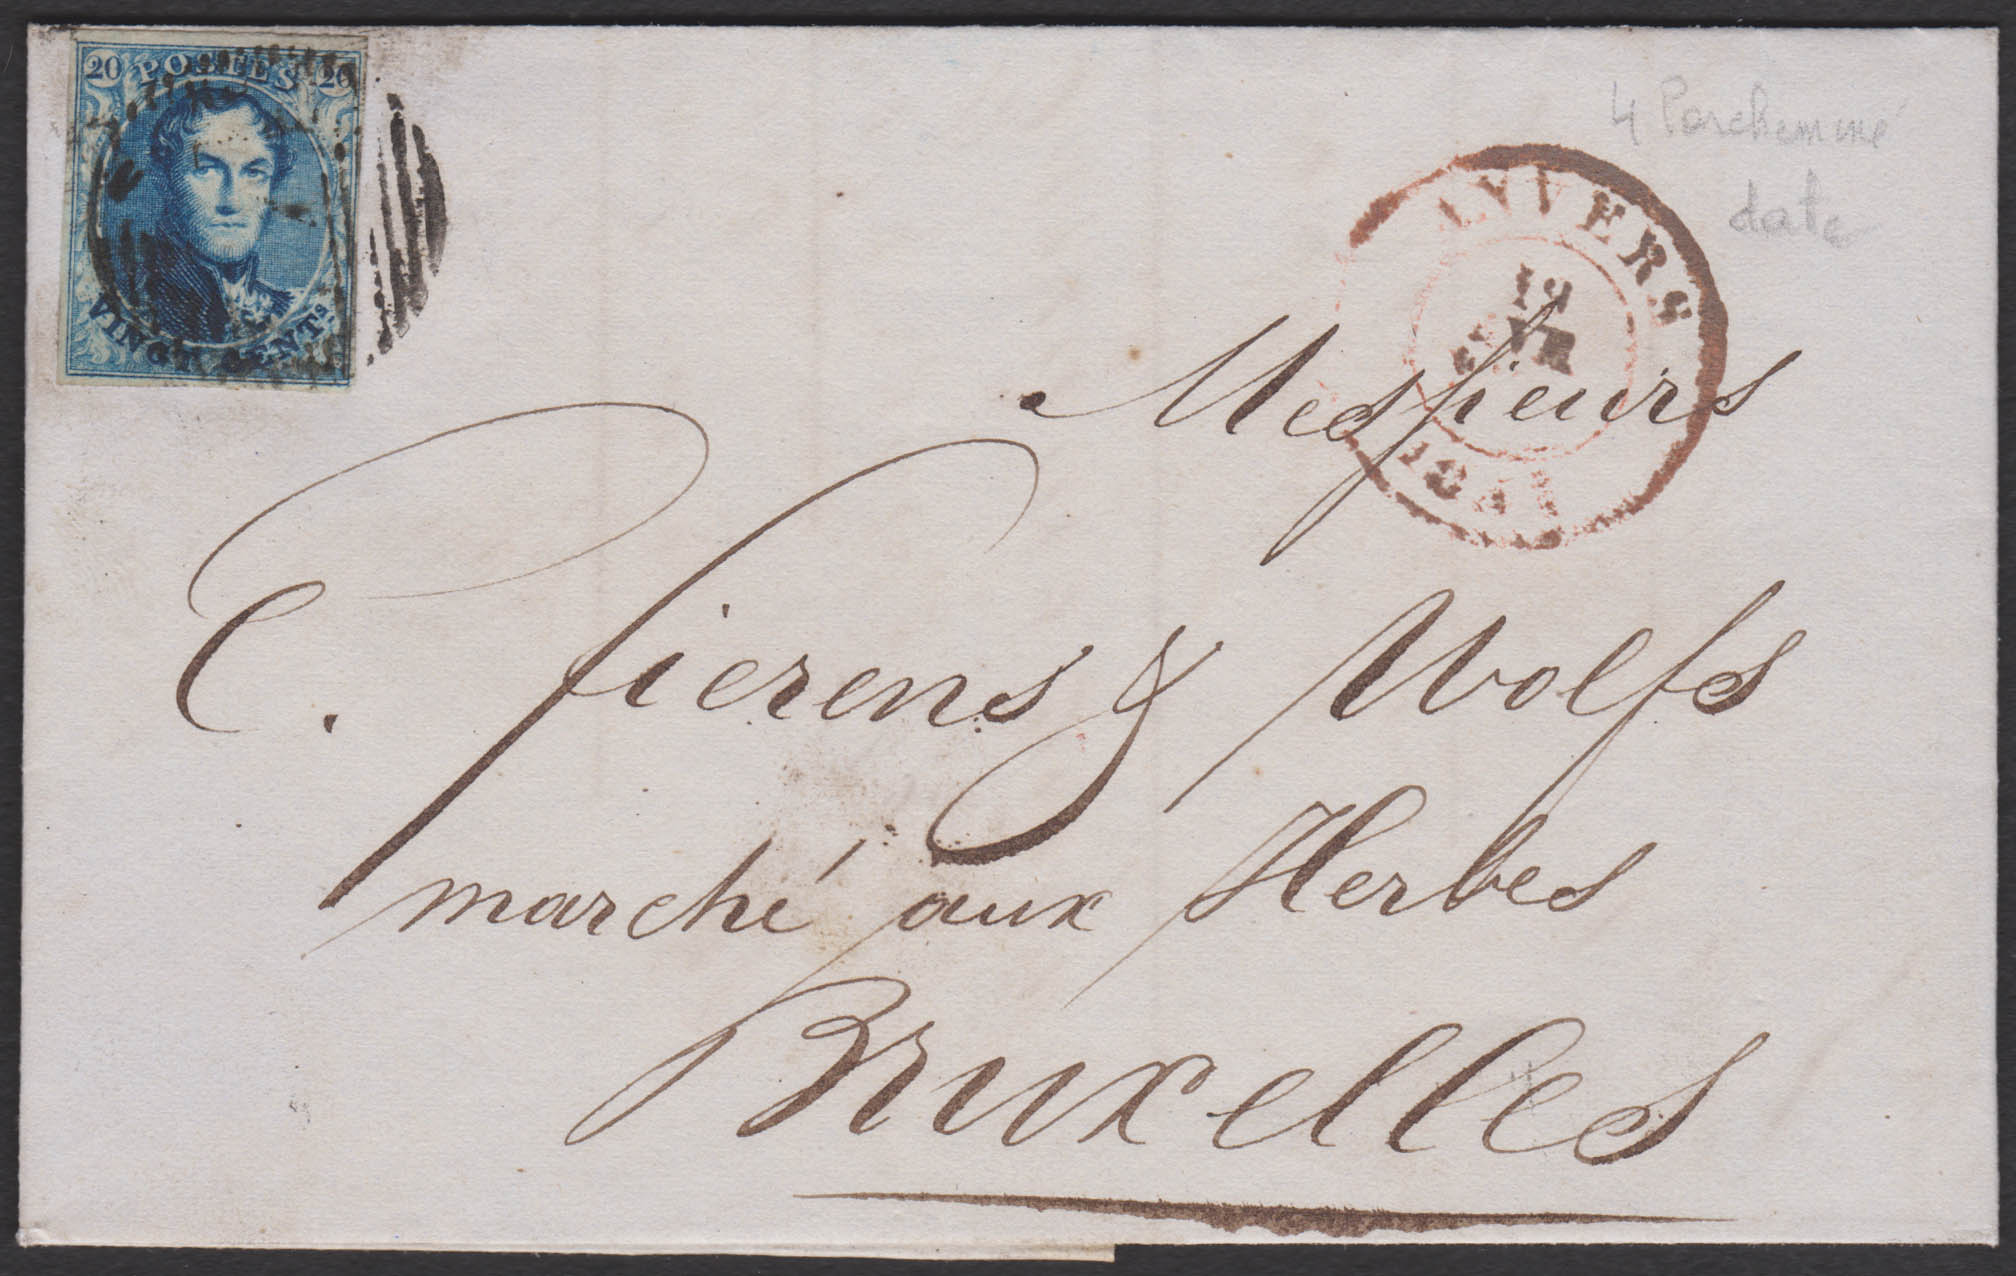 20 POSTES 20
VINGT CENTS
4 Parchemmé
date
ANVERS
19
FEVR
Messieurs
C. Fierens & Wolfs
marché aux Herbes
Bruxelles